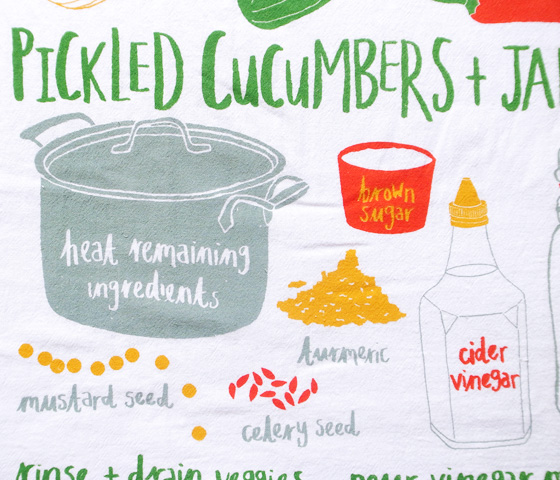 PICKLED CUCUMBERS + JA
brown
sugar
heat remaining
ingredients
turmeric
cider
vinegar
mustard seed
celery seed
rinse + drain veggies
pour vinegar